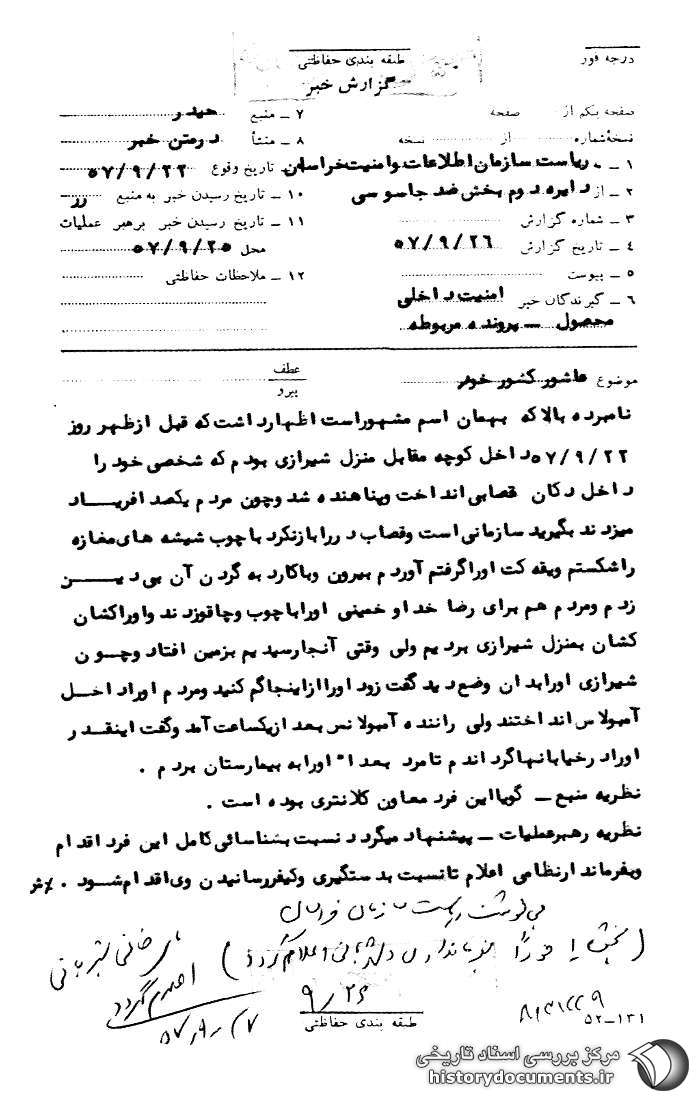 درجه فور
طبقه بندی حفاظتی
گزارش خبر
صفحه یکم از صفحه
نسخهٔ شماره از نسخه
۱ ــ به ریاست سازمان اطلاعات وامنیت خراسان
۲ ــ از دایره دوم بخش ضد جاسوسی
۳ ــ شماره گزارش
۴ ــ تاریخ گزارش ۵۷/۹/۲۶
۵ ــ پیوست
۶ ــ گیرندگان خبر امنیت داخلی
محصول ــ پرونده مربوطه
۷ ــ منبع حیدر
۸ ــ منشأ درمتن خبر
تاریخ وقوع ۵۷/۹/۲۲
۱۰ ــ تاریخ رسیدن خبر به منبع رز
۱۱ ــ تاریخ رسیدن خبر برهبر عملیات
محل ۵۷/۹/۲۵
۱۲ ــ ملاحظات حفاظتی
موضوع عاشور کشور خودر
عطف
پیرو
نامبرده بالاکه بهمان اسم مشهوراست اظهارداشت که قبل ازظهر روز
۵۷/۹/۲۲ داخل کوچه مقابل منزل شیرازی بودم که شخصی خود را
داخل دکان قصابی انداخت وپناهنده شد وچون مردم یکصد افریاد
میزدند بگیرید سازمانی است وقصاب در رابازنکرد باچوب شیشه های مغازه
راشکستم ویقه کت اوراگرفتم آوردم بیرون وباکارد به گردن آن بی دیــن
زدم ومردم هم برای رضا خدا و خمینی اوراباچوب وچاقوزدند واوراکشان
کشان بمنزل شیرازی بردیم ولی وقتی آنجارسیدیم بزمین افتاد وچــون
شیرازی اورابدان وضع دید گفت زود اوراازاینجاگم کنید ومردم اورادا خــل
آمبولاس انداختند ولی راننده آمبولانس بعد ازیکساعت آمد وگفت اینقــدر
اورادرخیابانهاگرداندم تامرد بعداً اورابه بیمارستان بردم .
نظریه منبع ــ گویااین فرد معاون کلانتری بوده است .
نظریه رهبرعملیات ــ پیشنهاد میگردد نسبت بشناسائی کامل این فرد اقدام
وبفرماندارنظامی اعلام تانسبت بدستگیری وکیفررسانیدن وی اقدام شــود .
پی نوشت ریاست سازمان خراسان
اعلام گردد
۹/۲۶
طبقه بندی حفاظتی
۵۲-۱۳۱
مرکز بررسی اسناد تاریخی
historydocuments.ir